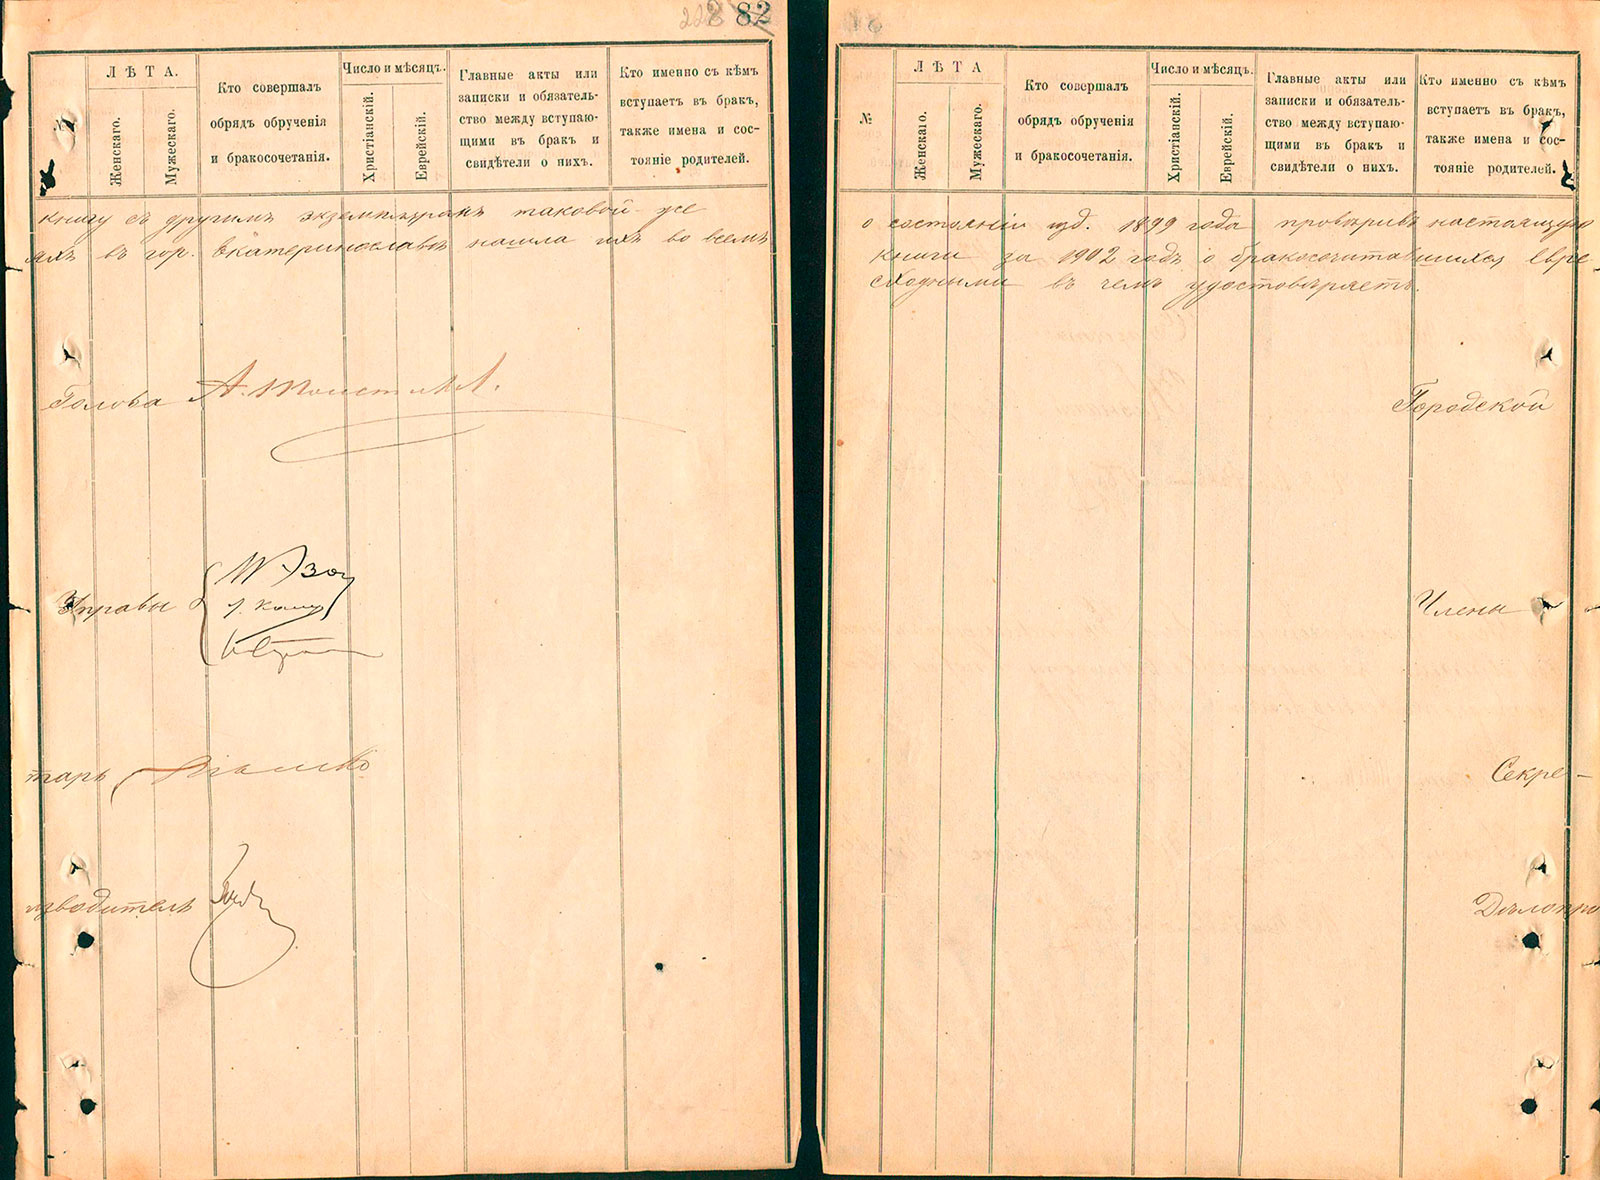 82
№
ЛѢТА.
Женскаго.
Мужескаго.
Кто совершалъ
обрядъ обрученія
и бракосочетанія.
Число и мѣсяцъ.
Христіанскій.
Еврейскій.
Главные акты или
записки и обязатель-
ство между вступаю-
щими въ бракъ и
свидѣтели о нихъ.
Кто именно съ кѣмъ
вступаетъ въ бракъ,
также имена и сос-
тояніе родителей.
книгу съ другимъ экземпляромъ таковой-же
яхъ въ гор. Екатеринославѣ нашла ихъ во всемъ
Голова
Управы
тарь
изводитель
№
ЛѢТА
Женскаго.
Мужескаго.
Кто совершалъ
обрядъ обрученія
и бракосочетанія.
Число и мѣсяцъ.
Христіанскій.
Еврейскій.
Главные акты или
записки и обязатель-
ство между вступаю-
щими въ бракъ и
свидѣтели о нихъ.
Кто именно съ кѣмъ
вступаетъ въ бракъ,
также имена и сос-
тояніе родителей.
о состояніи изд. 1899 года провѣривъ настоящую
книги за 1902 годъ о бракосочитавшихся Евре-
сходными въ чемъ удостовѣряетъ.
Городской
Члены
Секре-
Дѣлопро